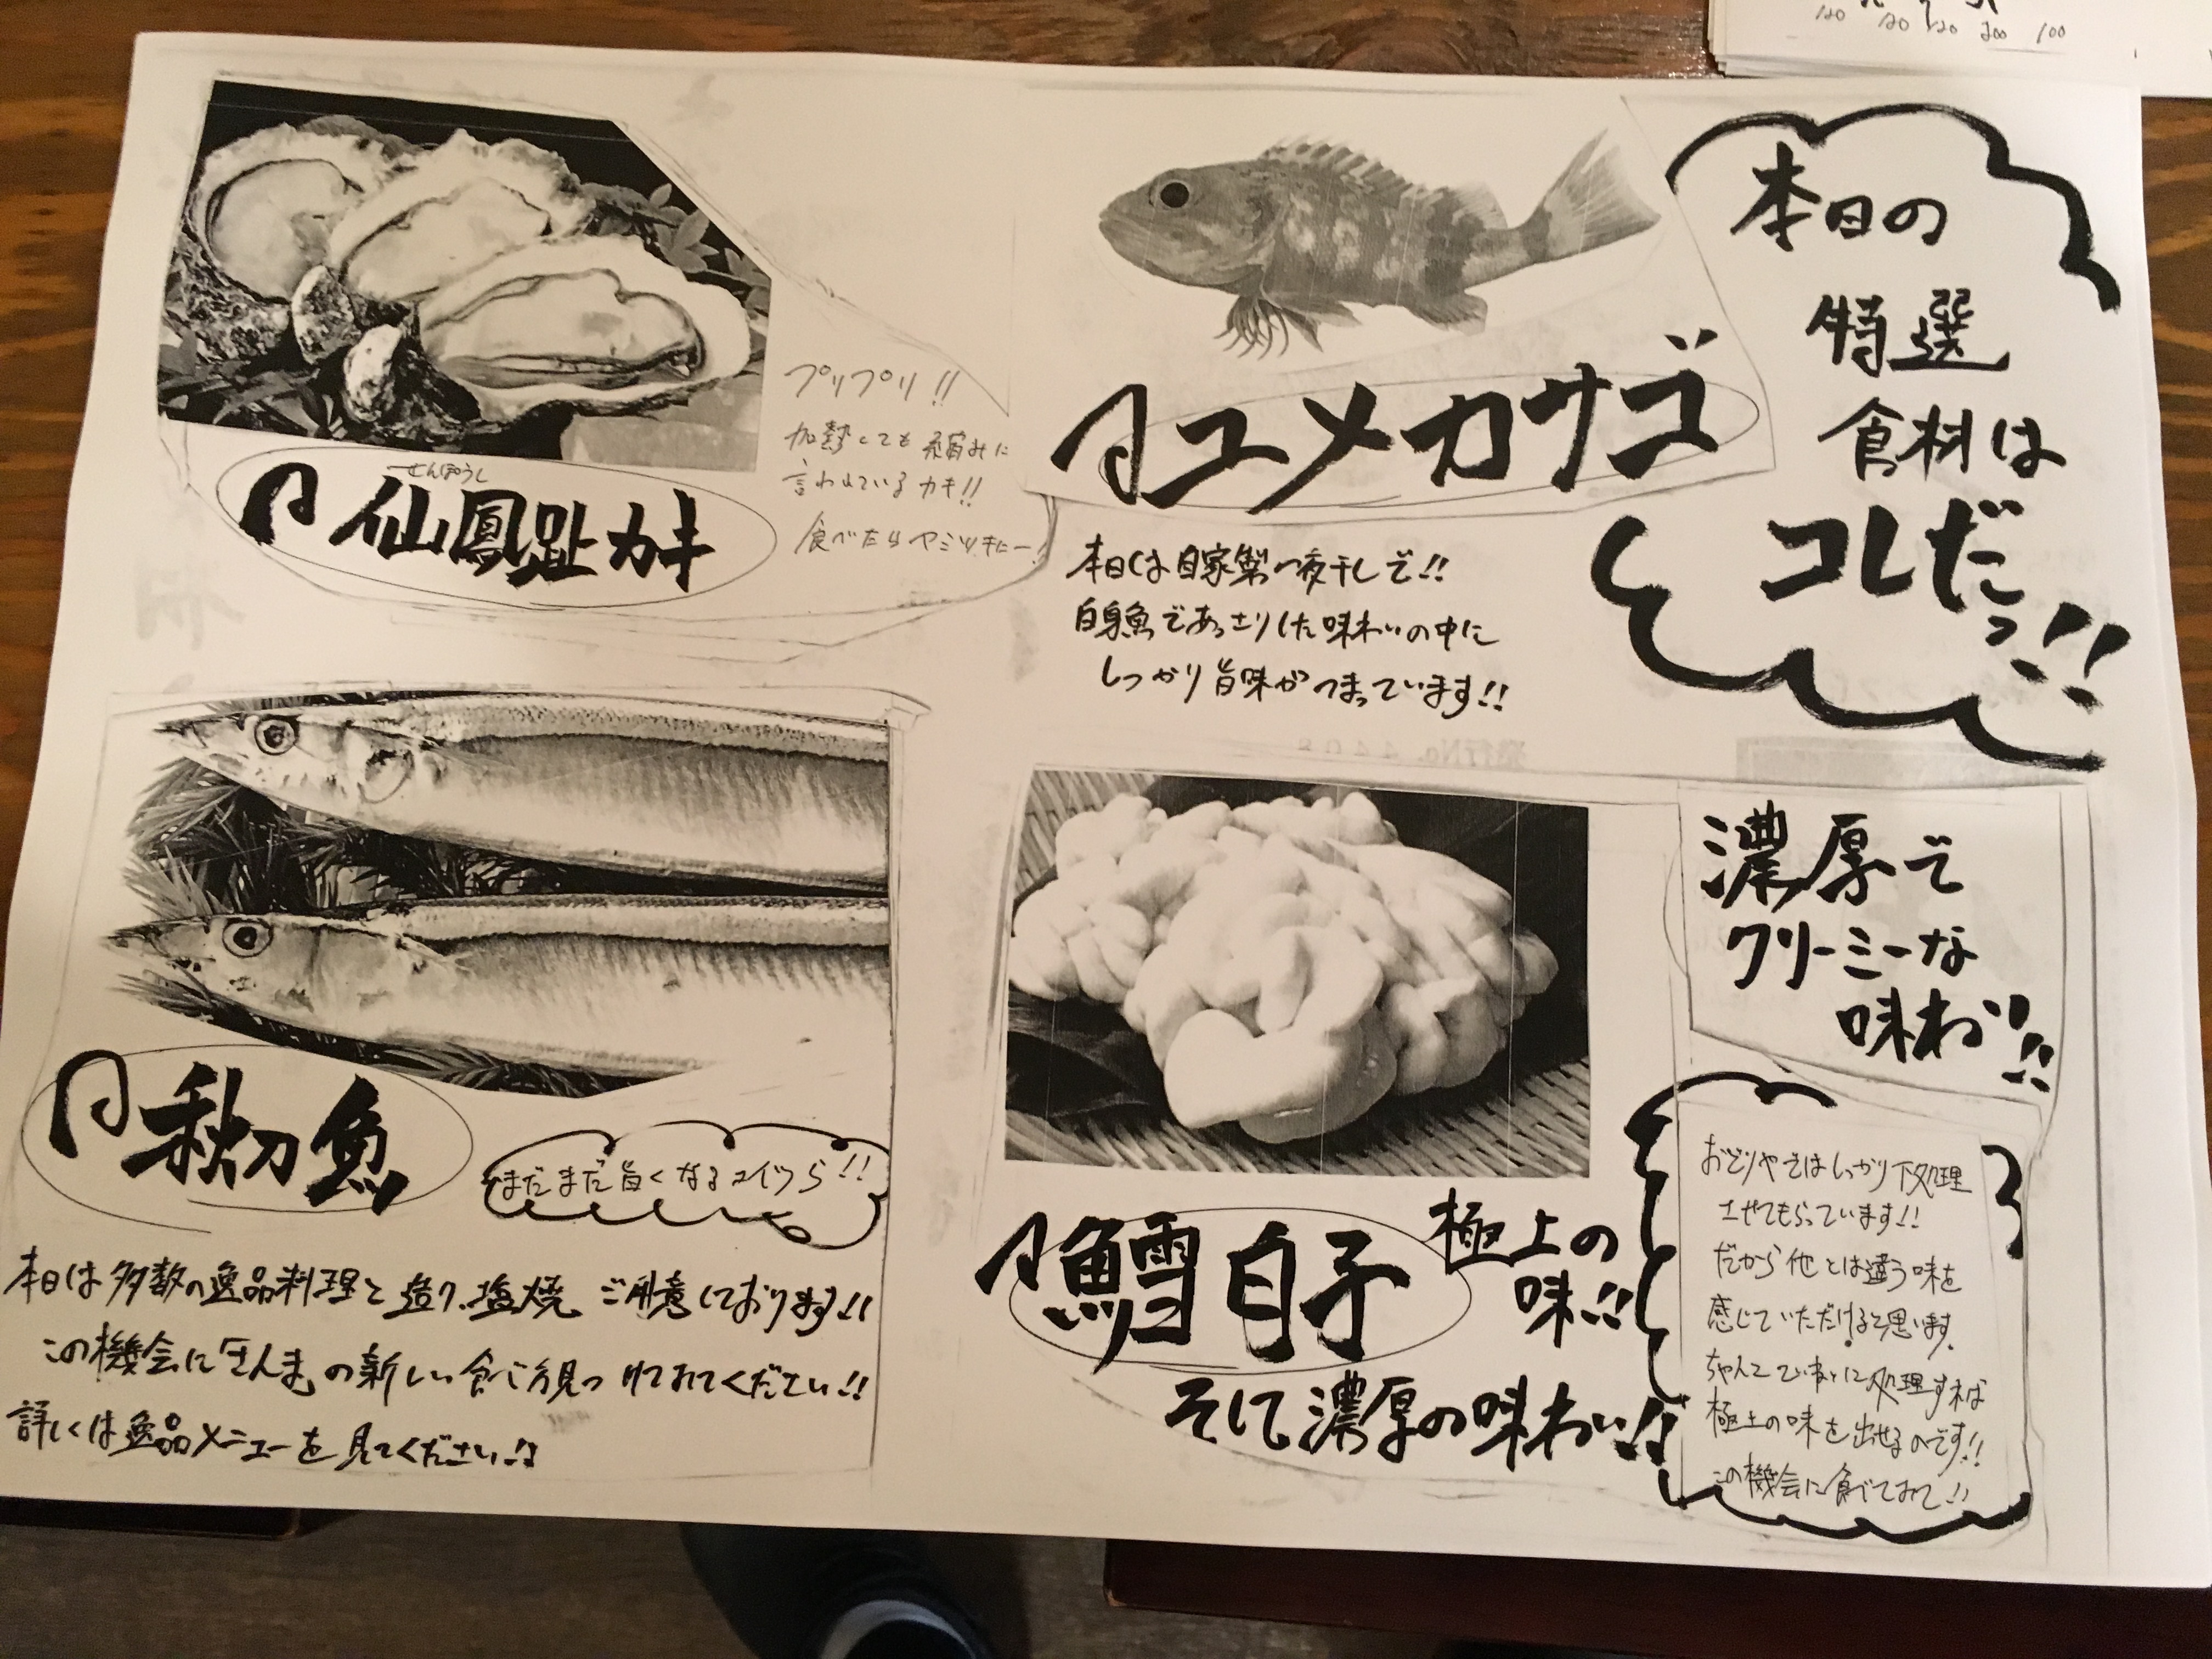 本日の
特選
食材は
コレだっ!!
ユメカサゴ
本日は自家製一夜干しで!!
白身魚であっさりした味わいの中に
しっかり旨味がつまっています!!
せんぽうし
仙鳳趾カキ
プリプリ!!
加熱しても
言われているカキ!!
食べたらヤミツキにー!
秋刀魚
まだまだ旨くなるコイツら!!
本日は多数の逸品料理と造り、塩焼ご用意しております!!
この機会に「さんま」の新しい食べ方見つけてみてください!!
詳しくは逸品メニューを見てください!!
濃厚で
クリーミーな
味わい!!
鱈白子
極上の
味!!
そして濃厚の味わい!!
おどりやではしっかり下処理
させてもらっています!!
だから他とは違う味を
感じていただけると思います。
ちゃんとていねいに処理すれば
極上の味を出せるのです!!
この機会に食べてみて!!
発行No. 4408
120 120 120 200 100